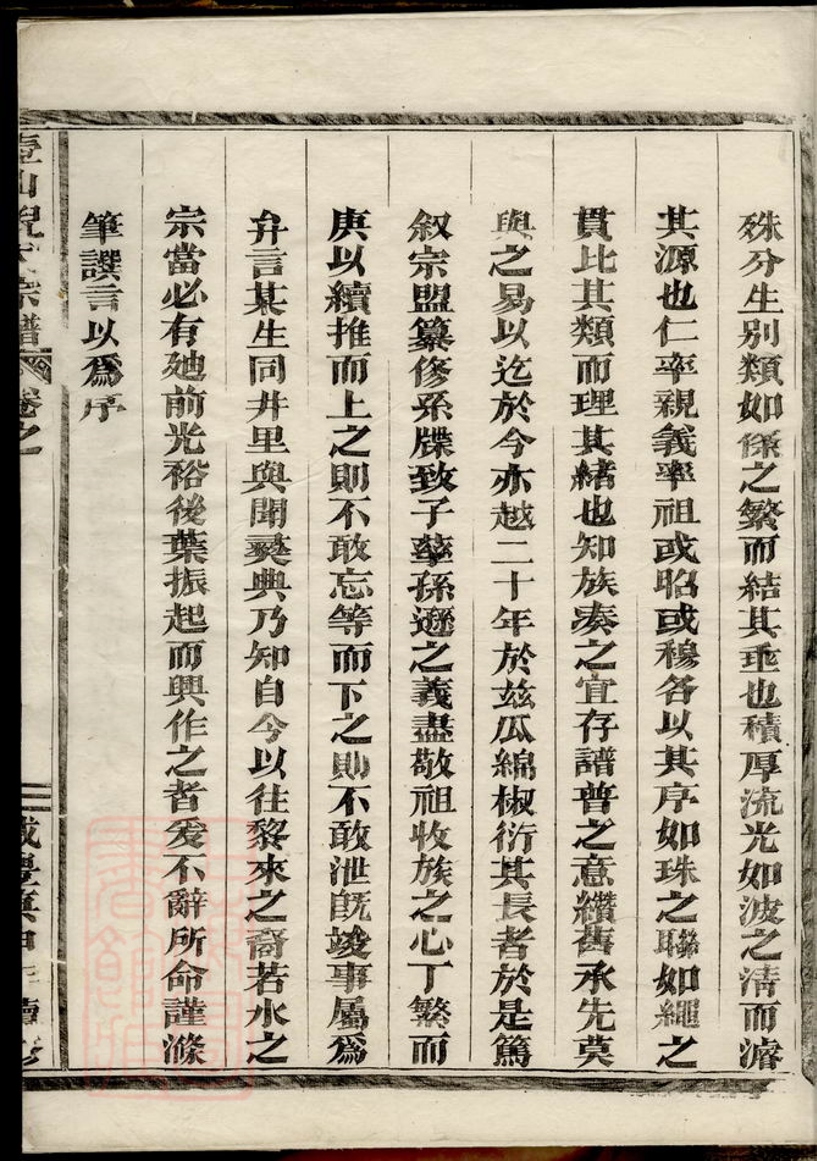 殊分生別類如係之繁而結其乖也積厚流光如波之清而濬
其源也仁率親義率祖或昭或穆各以其序如珠之聯如繩之
貫比其類而理其緒也知族湊之宜存譜普之意纘舊承先莫
與之易以迄於今亦越二十年於玆瓜綿椒衍其長者於是篤
叙宗盟纂修系牒致子孳孫遜之義盡敬祖收族之心丁繁而
庚以續推而上之則不敢忘等而下之則不敢泄旣竣事屬爲
弁言某生同井里與聞彛典乃知自今以往黎來之裔若水之
宗當必有廸前光裕後葉振起而興作之者爰不辭所命謹滌
筆譔言以爲序
壺山倪氏宗譜 卷之 咸豐庚申年續修